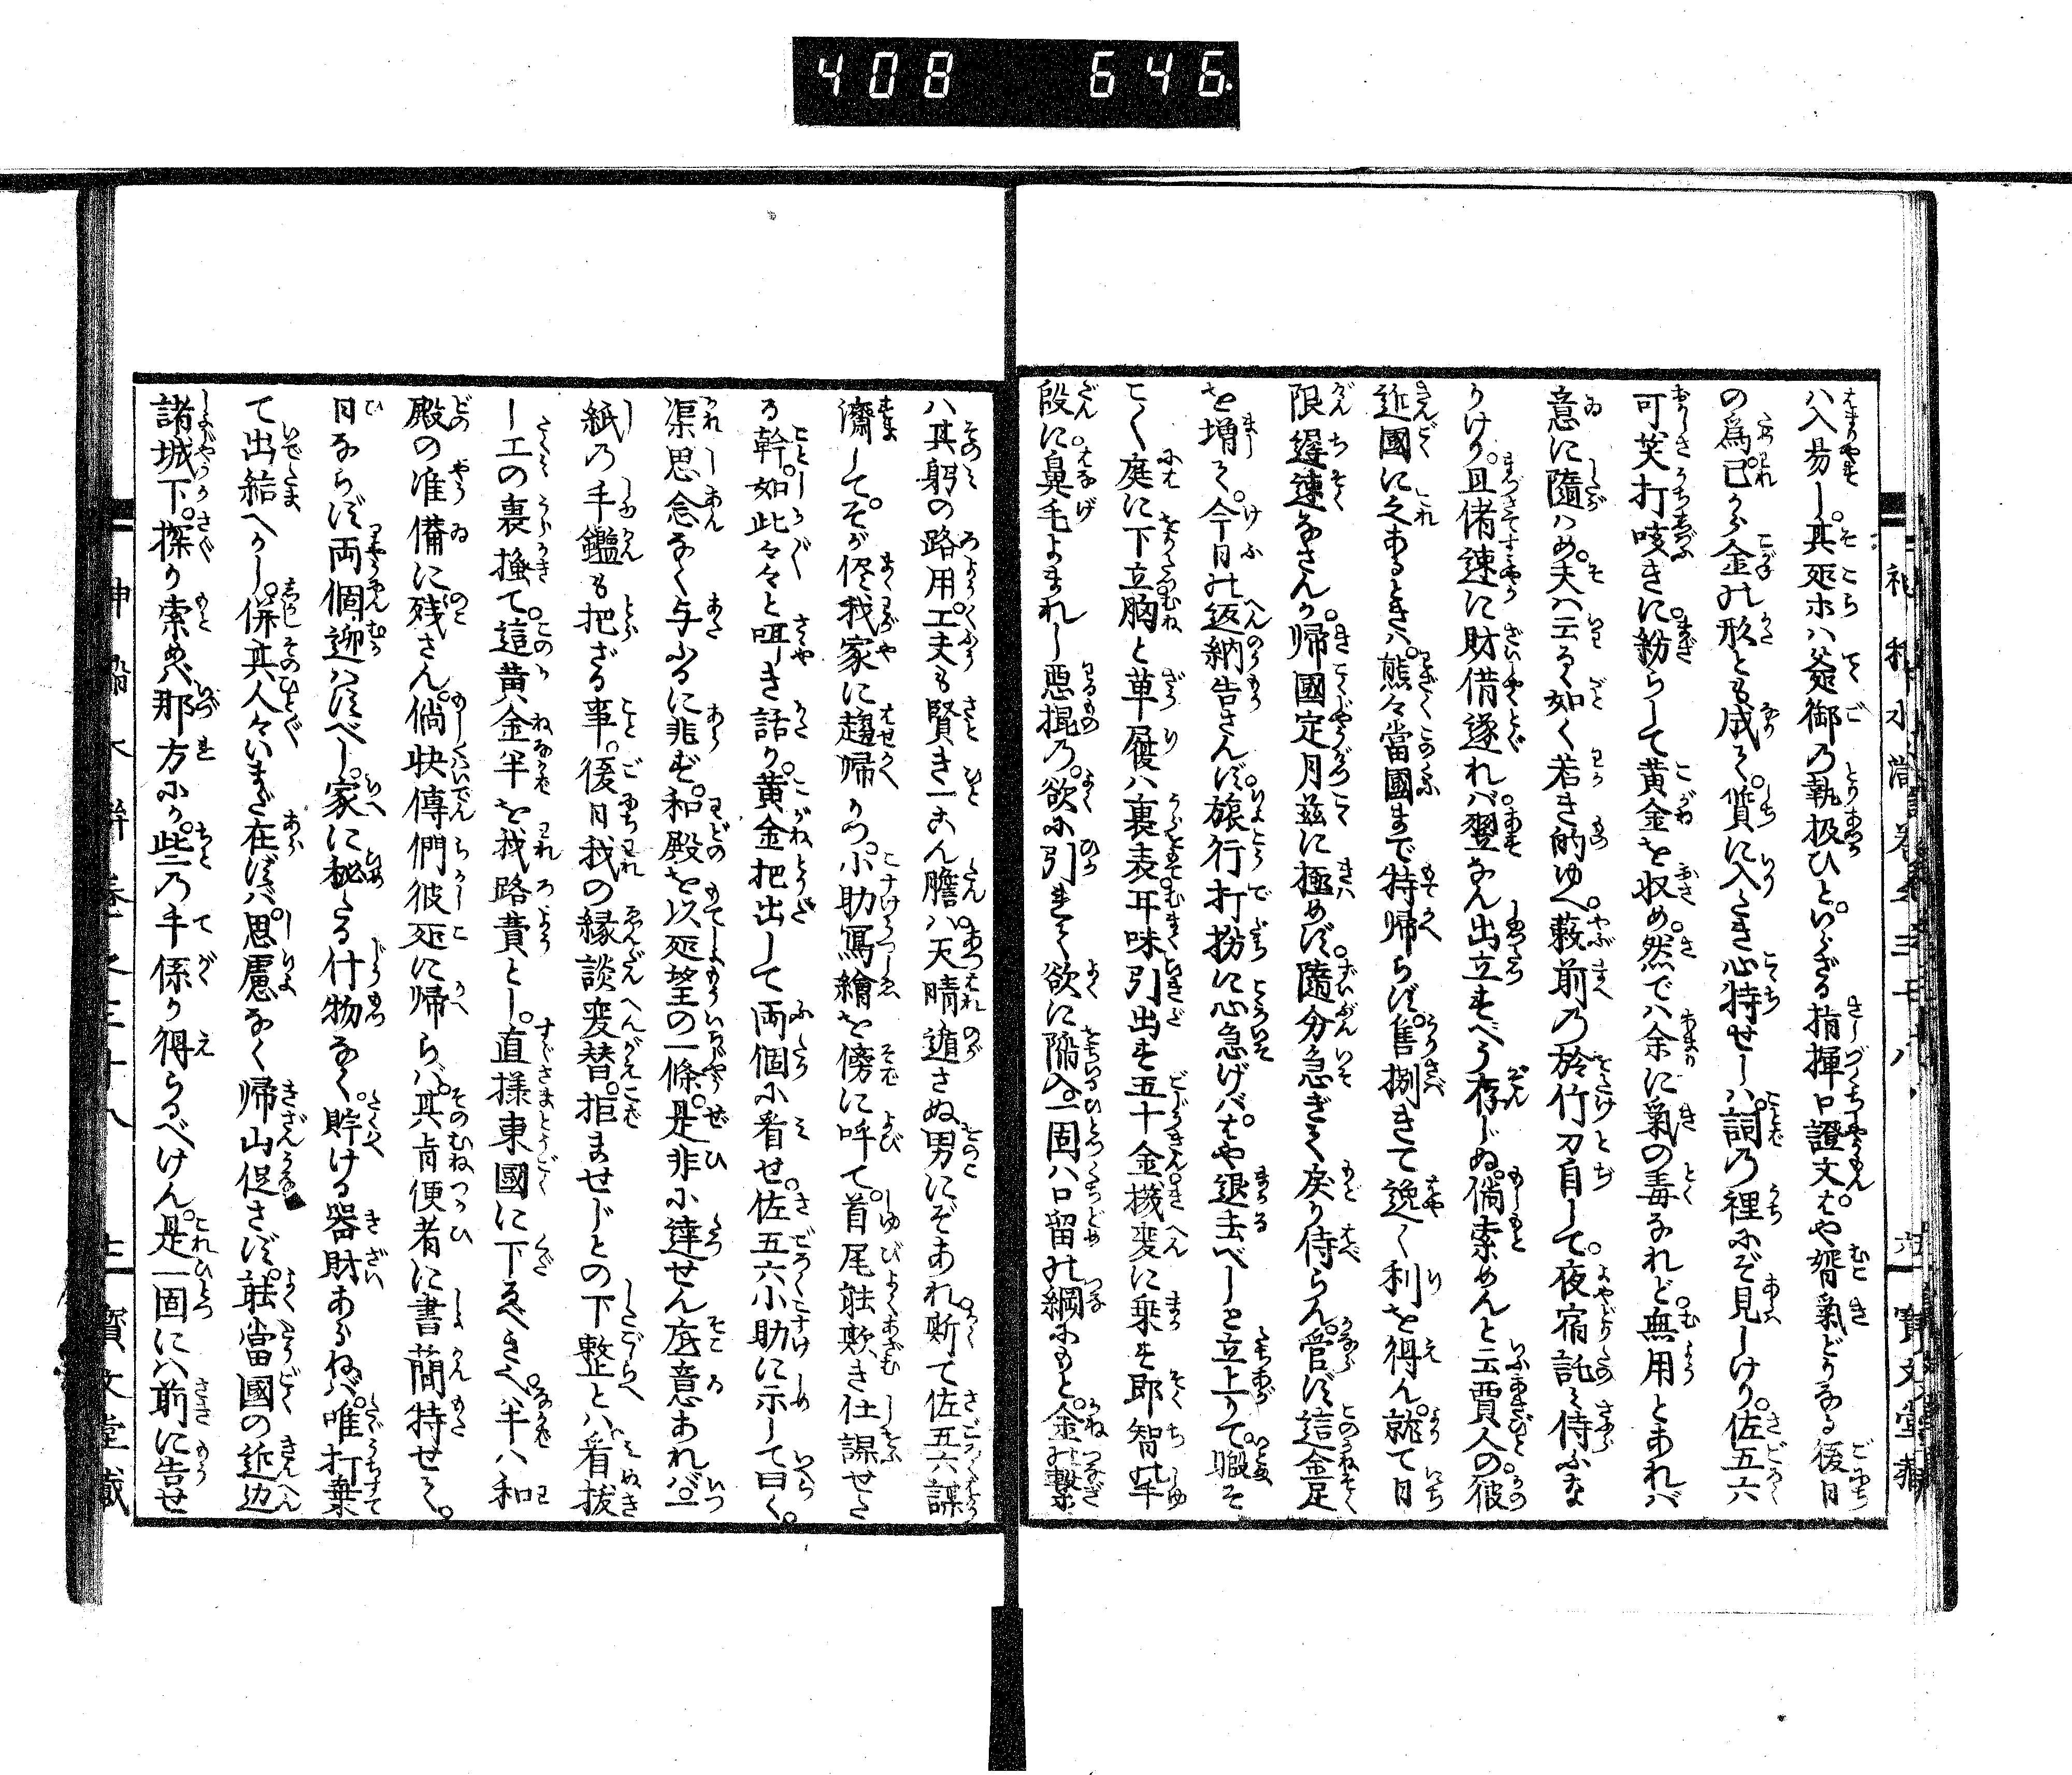 408 646
ハ入易し。其処ホハ爺御の執扱ひと。いらざる指揮口證文。はや婿氣どりなる後日
の為。已から金の形とも成て。質に入べき心特せしハ。詞の裡にぞ見しけり。佐五六
可笑打咳きに。紛らして黄金を収め。然でハ余に氣の毒なれど。無用とあれバ
意に隨ハめ。夫ハ云るゝ如く若き的ゆへ。藪前の於竹刀自して。夜宿託ミ侍ふな
りけり。且偖速に財借遂れバ。翌なん出立すべう存じぬ。倘索めんと云賈人の。彼
近國に之あるときハ。熊々當國まで特帰らず。售捌きて逸く利を得ん。就て日
限遅速なさんか。帰國定月茲に極めず。隨分急ぎて戻り侍らん。管ず這金足
を増して。今日の返納告さんず。旅行打扮に心急げバ。はや退去べしと立上りて。暇そ
こく庭に下立。胸と草履ハ裏表。耳味引出す五十金。機変に乗す即智の隼
段に。鼻毛よまれし惡掍の。欲に引れて欲に陥入。一固ハ口留の綱にもと。金の繋
ハ其躬の路用。工夫も賢き一こん膽ハ。天晴遁さぬ男にぞあれ。斯て佐五六謀
濟してぞ。そが侭我家に趨帰りつ。小助寫繪を傍に呼て。首尾能欺き仕課せた
る幹。如此々々と咡き話り。黄金把出して両個に看せ。佐五六小助に示して曰く。
渠思念なく与ふるに非ず。和殿を以処望の一條。是非に達せん底意あれバ。一
紙の手鑑も把ざる事。後日我の縁談変替。拒ませじとの下整とハ。看抜
し工の裏搔て。這黄金半を我路費とし。直様東國に下るべきへ。半ハ和
殿の准備に残さん。倘快傳們彼処に帰らバ。其㫖便者に書簡特せて。
日ならず両個迎はすべし。家に秘たる什物なく。貯ける器財あらねバ。唯打棄
て出結へかし。併其人々いまだ在ずハ。思慮なく帰山促さず。能當國の近辺
諸城下。探り索めバ那方にか。些の手係り得らるべけん。是一固にハ前に告せ